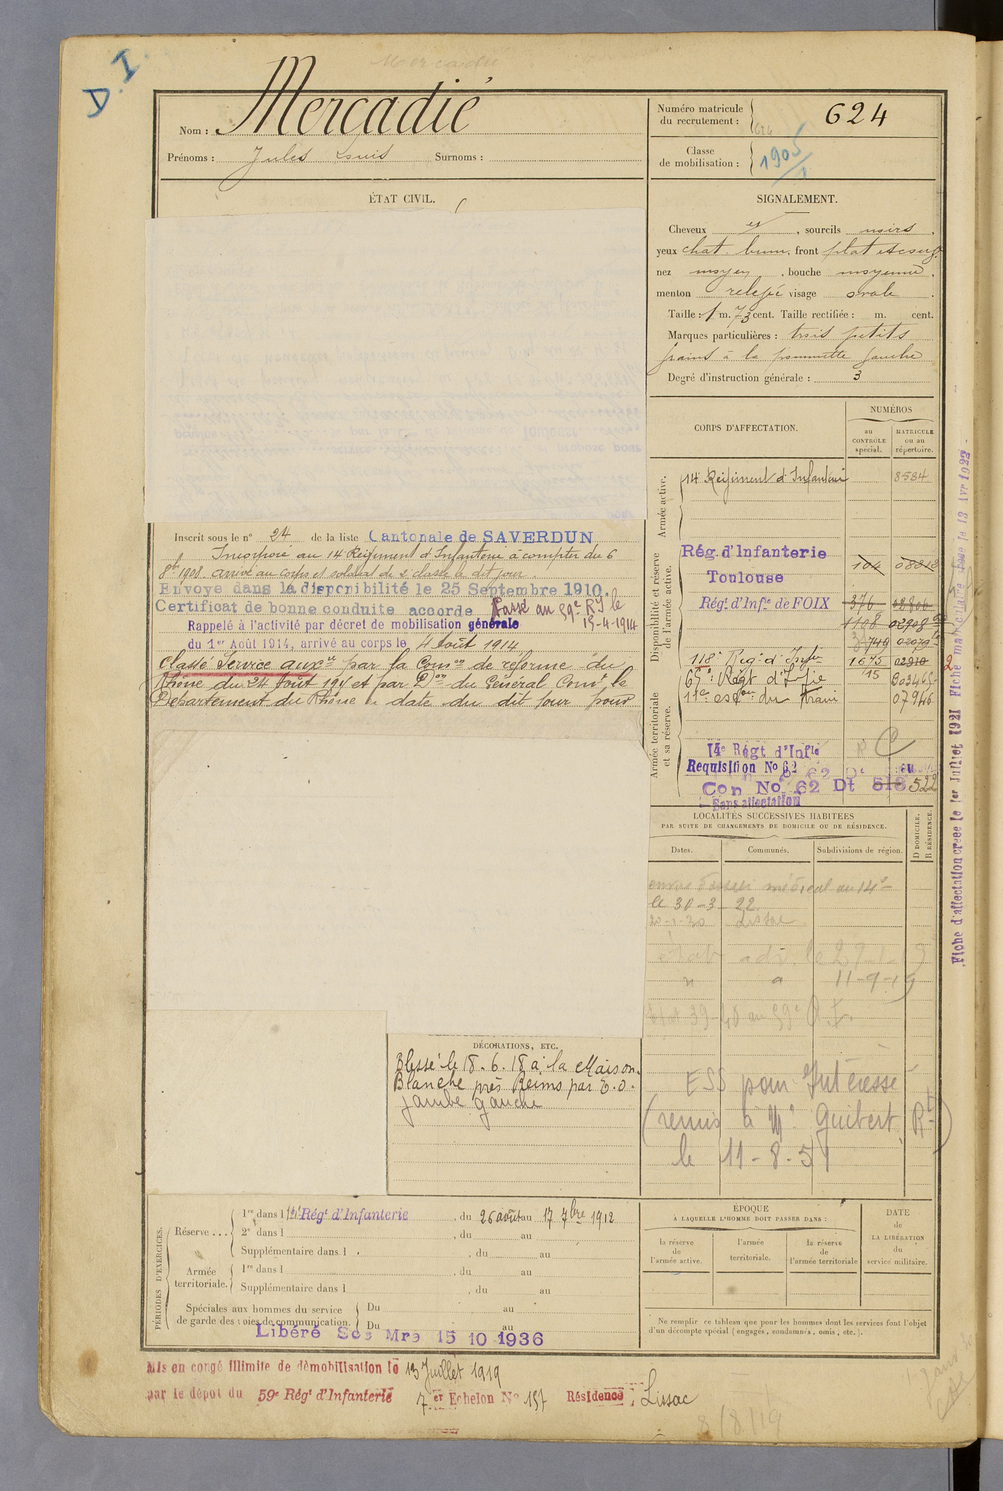 D. I.
Mercadié
Nom : Mercadié
Prénoms : Jules Louis Surnoms :
ÉTAT CIVIL.
Numéro matricule
du recrutement : 624
Classe
de mobilisation : 1905
SIGNALEMENT.
Cheveux et , sourcils noirs .
yeux chat. brun, front plat
nez moyen , bouche moyenne .
menton relevé visage ovale .
Taille : 1 m. 73 cent. Taille rectifiée : m. cent.
Marques particulières : trois petits
grains à la pommette gauche
Degré d'instruction générale : 3
CORPS D'AFFECTATION.
NUMÉROS
au
CONTRÔLE
spécial.
MATRICULE
ou au
répertoire.
Armée active.
14 Régiment d'Infanterie 8584
Disponibilité et réserve
de l'armée active.
Rég. d'Infanterie
Toulouse 104
Régt d'Infie de FOIX 376
1168 02908
118e Reg. d'Infie 1675 02910
65e Régt d'Infie 15
11e escon du train 07946
Armée territoriale
et sa réserve.
14e Régt d'Infie
Requisition No 62
Con No 62 Dt 518 522
Sans affectation
Inscrit sous le n° 24 de la liste Cantonale de SAVERDUN
Incorporé au 14 Régiment d'Infanterie à compter du 6
8bre 1908. Arrivé au corps et soldat de 2e classe le dit jour.
Envoyé dans la disponibilité le 25 Septembre 1910.
Certificat de bonne conduite accordé Passé au 59e R.I le
15-4-1914
Rappelé à l'activité par décret de mobilisation générale
du 1er Août 1914, arrivé au corps le 4 août 1914
Classé Service auxre par la Comon de réforme du
Rhône du 24 Août 191 et par Don du Général Comt le
Département du Rhône en date du dit jour pour
LOCALITÉS SUCCESSIVES HABITÉES
PAR SUITE DE CHANGEMENTS DE DOMICILE OU DE RÉSIDENCE.
Dates. Communes. Subdivisions de région. D DOMICILE. R RÉSIDENCE.
envoi dossier médical au 14e
le 30-3-22.
20-1-30 Lissac
11-9-19
ESS pour Intéressé
(remis à Mr Guibert Rt)
le 11-8-51
DÉCORATIONS, ETC.
Blessé le 18.6.18 à la Maison
Blanche près Reims par E.O.
jambe gauche
PÉRIODES D'EXERCICES.
Réserve... 1re dans l 14e Régt d'Infanterie , du 26 août au 17 7bre 1912
2e dans l , du au
Supplémentaire dans l , du au
Armée
territoriale. 1re dans l , du au
Supplémentaire dans l , du au
Spéciales aux hommes du service
de garde des voies de communication. Du au
Du au
Libéré Ses Mre 15 10 1936
ÉPOQUE
À LAQUELLE L'HOMME DOIT PASSER DANS :
la réserve
de
l'armée active.
l'armée
territoriale.
la réserve
de
l'armée territoriale
DATE
de
LA LIBÉRATION
du
service militaire.
Ne remplir ce tableau que pour les hommes dont les services font l'objet
d'un décompte spécial (engagés, condamnés, omis, etc.).
Mis en congé illimité de démobilisation le 13 Juillet 1919
par le dépôt du 59e Régt d'Infanterie 7er Echelon No 157 Résidence : Lissac
8/8/19
Fiche d'affectation créée le 1er Juillet 1921 Fiche matriculaire le 13 Avr 1922